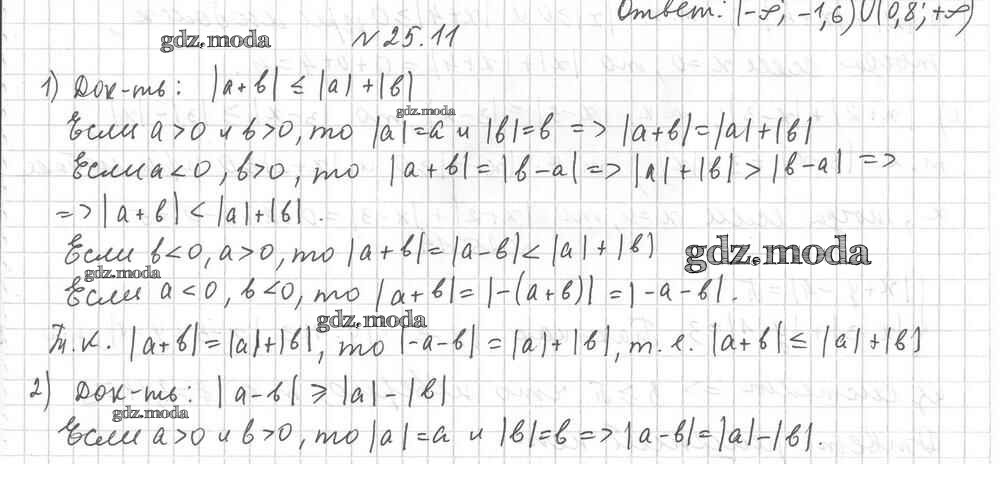 Ответ: (-∞; -1,6)∪(0,8; +∞)
gdz.moda
№25.11
1) Док-ть: |a+b| ≤ |a|+|b|
gdz.moda
Если a>0 и b>0, то |a|=a и |b|=b => |a+b|=|a|+|b|
Если a<0, b>0, то |a+b|=|b-a| => |a|+|b|>|b-a| =>
=> |a+b|<|a|+|b|.
Если b<0, a>0, то |a+b|=|a-b|<|a|+|b|
gdz.moda
gdz.moda
Если a<0, b<0, то |a+b|=|-(a+b)|=|-a-b|.
gdz.moda
Т.к. |a+b|=|a|+|b|, то |-a-b|=|a|+|b|, т.е. |a+b|≤|a|+|b|
2) Док-ть: |a-b| ≥ |a|-|b|
gdz.moda
Если a>0 и b>0, то |a|=a и |b|=b => |a-b|=|a|-|b|.